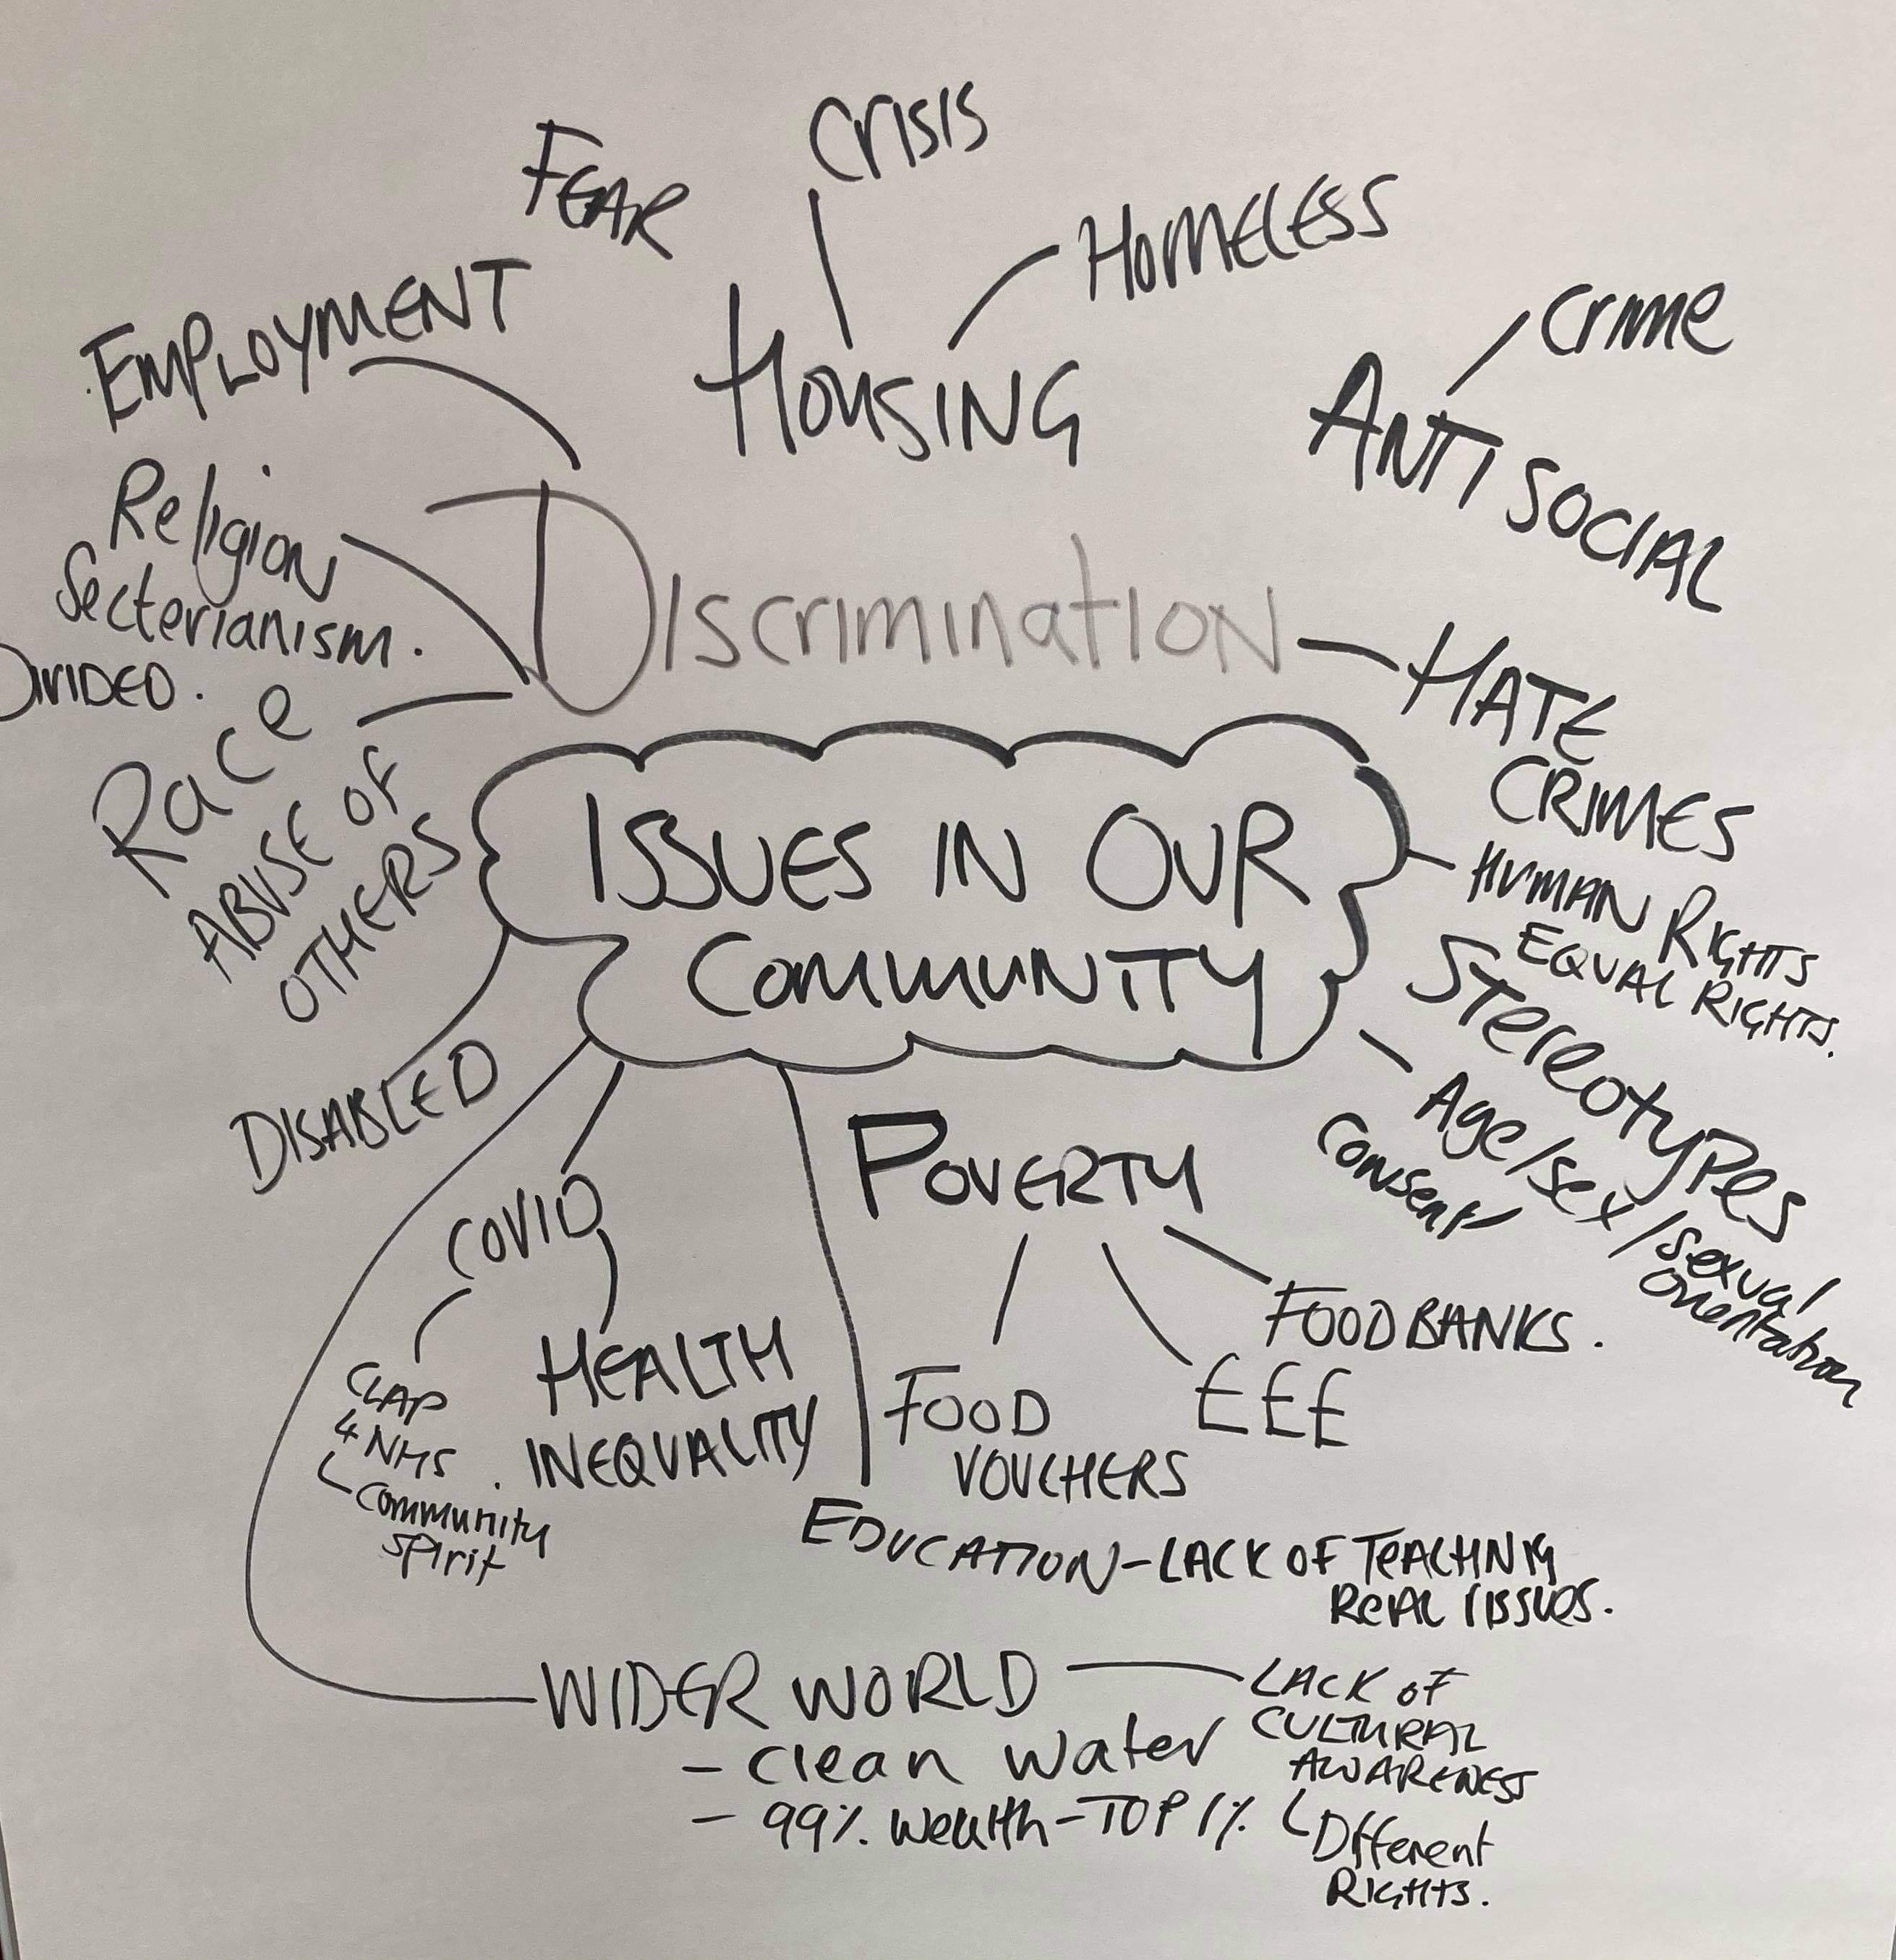 Crisis
FEAR
HOMELESS
EMPLOYMENT
Crime
HOUSING
ANTI SOCIAL
Religion
Secterianism.
DIVIDED.
DISCRIMINATION
HATE
CRIMES
Race
ABUSE OF
OTHERS
ISSUES IN OUR
COMMUNITY
HUMAN RIGHTS
EQUAL RIGHTS.
STereotypes
Age/sex/sexual
orientation
consent
DISABLED
COVID
POVERTY
CLAP
4 NHS
Community
Spirit
HEALTH
INEQUALITY
FOOD
VOUCHERS
£££
FOODBANKS.
EDUCATION-LACK OF TEACHNIG
REAL ISSUES.
WIDER WORLD
- clean water
- 99% wealth-TOP 1%
LACK OF
CULTURAL
AWARENESS
Dfferent
RIGHTS.